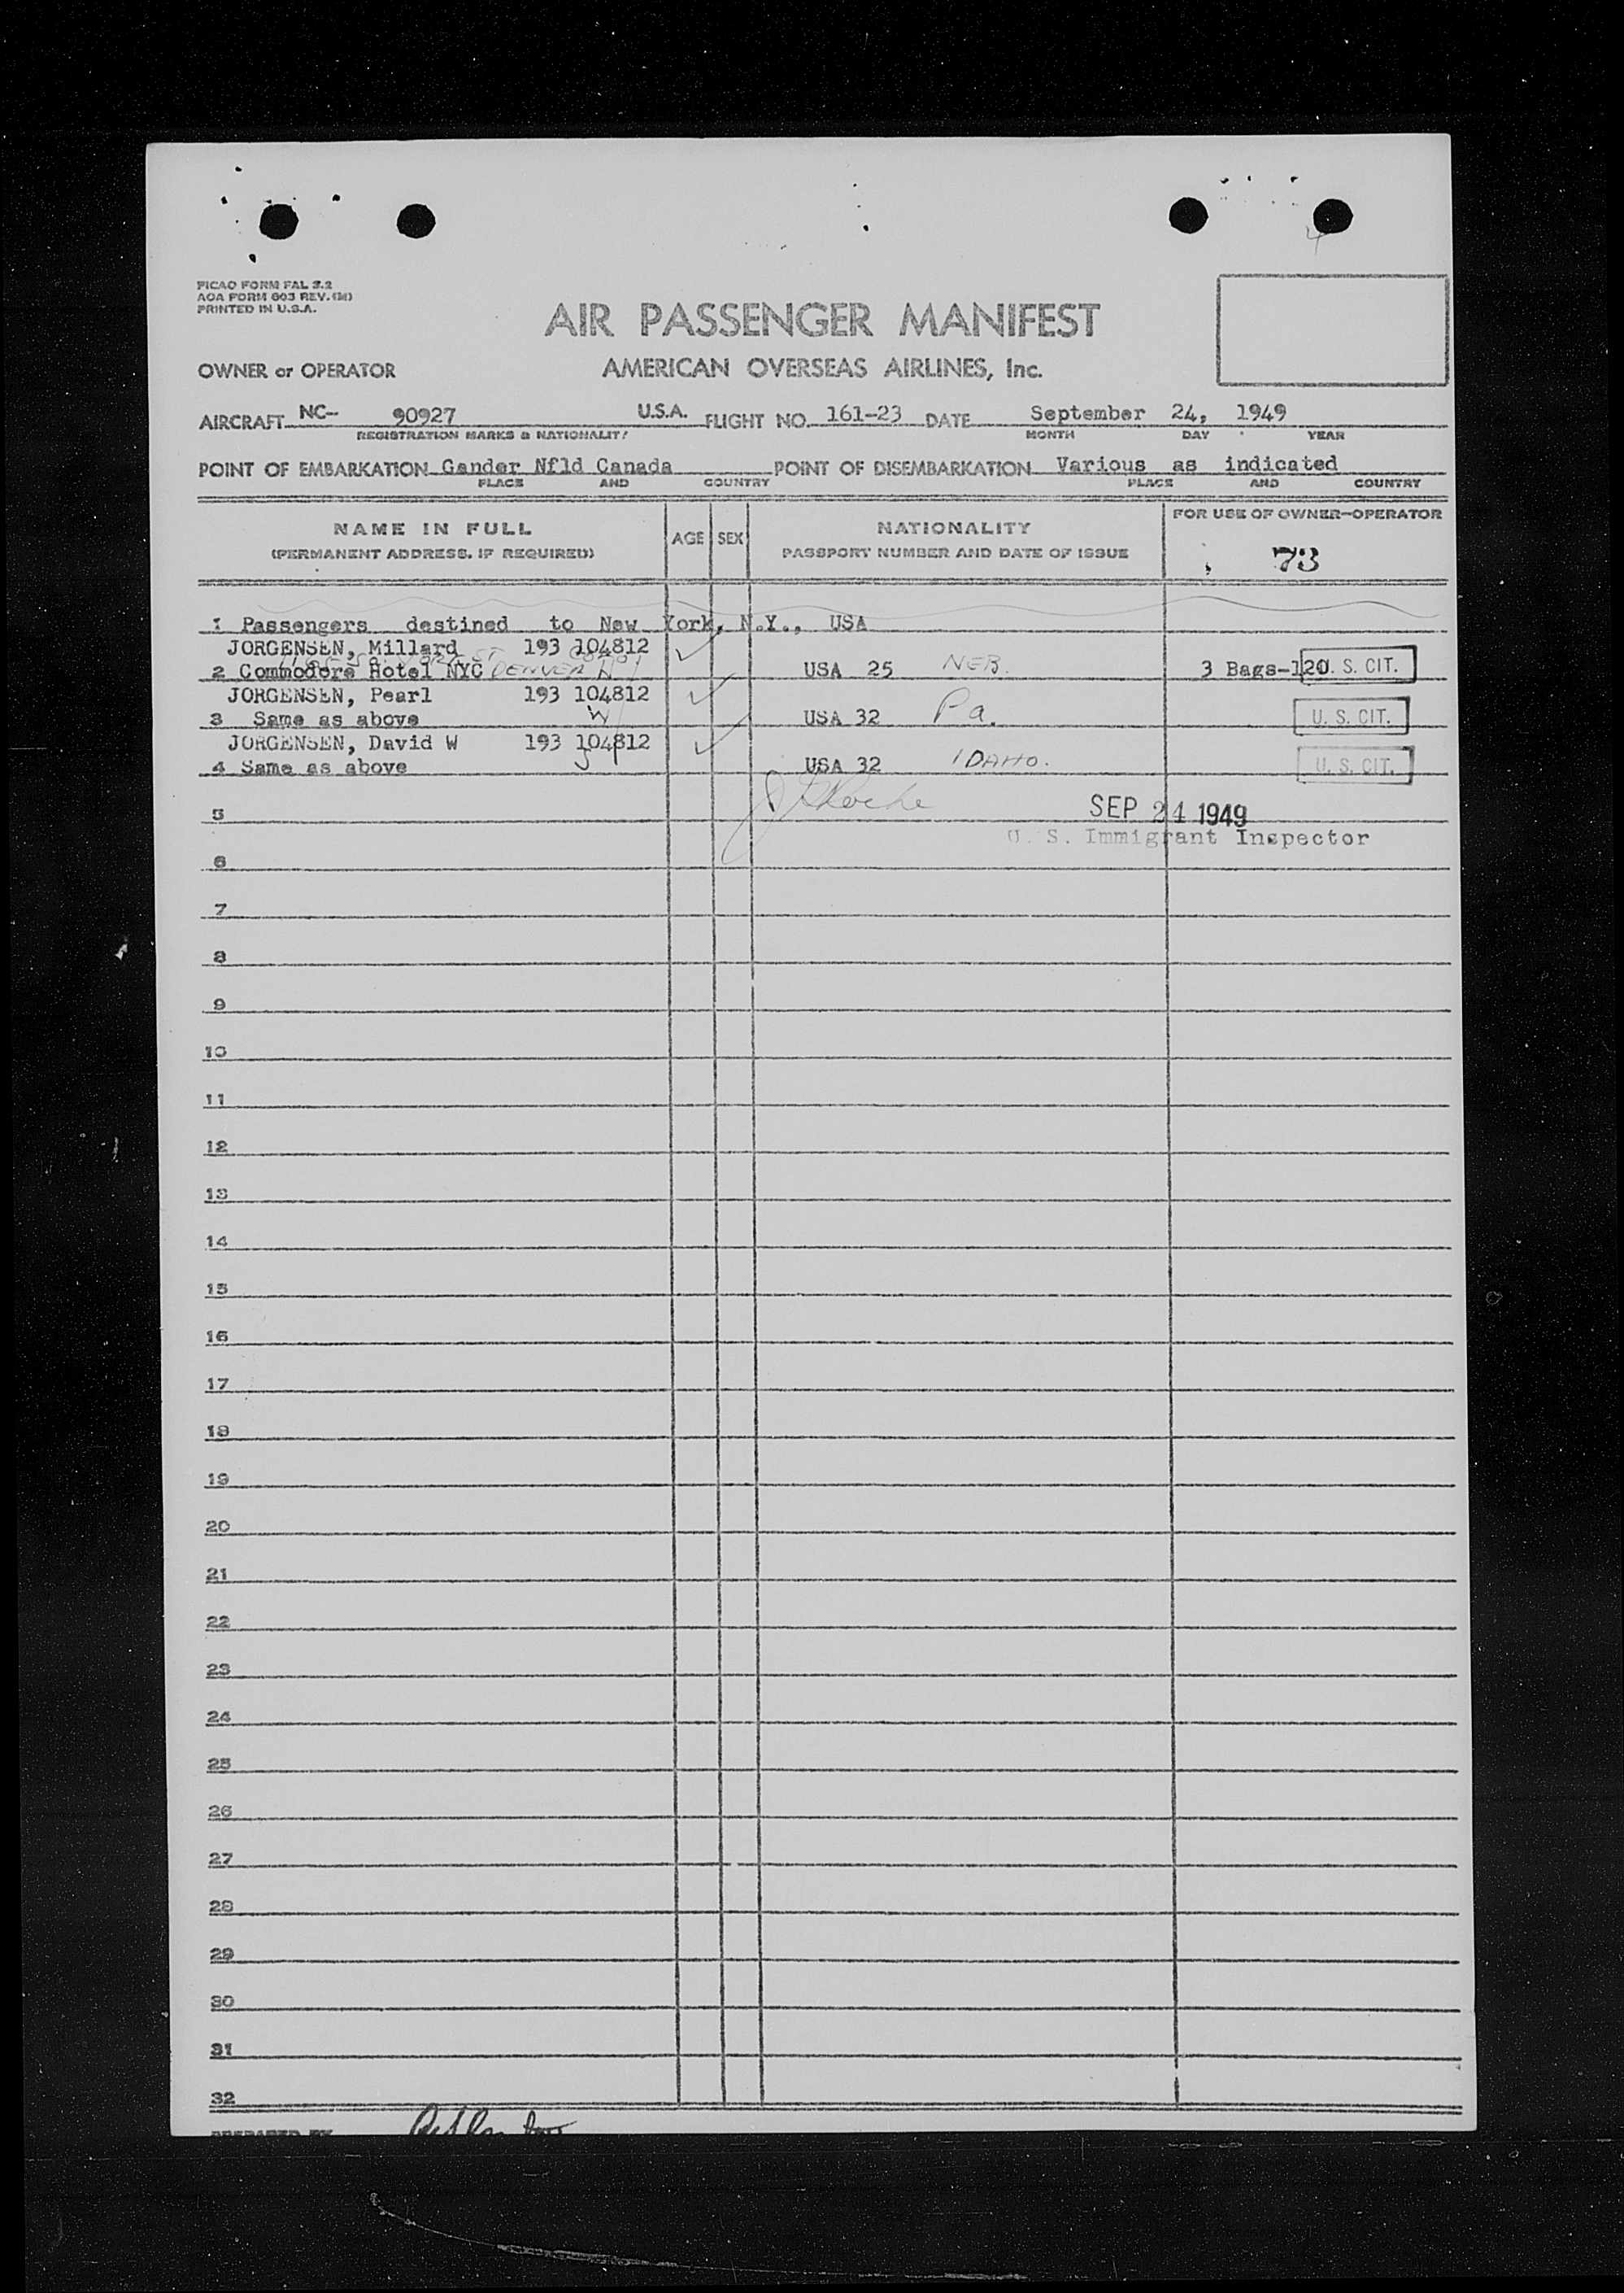 PICAO FORM FAL 3.2
AOA FORM 603 REV. (M)
PRINTED IN U.S.A.
AIR PASSENGER MANIFEST
OWNER or OPERATOR AMERICAN OVERSEAS AIRLINES, Inc.
AIRCRAFT NC- 90927 U.S.A. FLIGHT NO. 161-23 DATE September 24, 1949
REGISTRATION MARKS & NATIONALITY MONTH DAY YEAR
POINT OF EMBARKATION Gander Nfld Canada POINT OF DISEMBARKATION Various as indicated
PLACE AND COUNTRY PLACE AND COUNTRY
NAME IN FULL AGE SEX NATIONALITY FOR USE OF OWNER-OPERATOR
(PERMANENT ADDRESS, IF REQUIRED) PASSPORT NUMBER AND DATE OF ISSUE 73
1 Passengers destined to New York, N.Y., USA
JORGENSEN, Millard 193 104812
2 Commodore Hotel NYC DENVER USA 25 NEB. 3 Bags-120 U. S. CIT.
JORGENSEN, Pearl 193 104812
W
3 Same as above USA 32 Pa. U. S. CIT.
JORGENSEN, David W 193 104812
4 Same as above USA 32 IDAHO. U. S. CIT.
5 Roche SEP 24 1949
U. S. Immigrant Inspector
6
7
8
9
10
11
12
13
14
15
16
17
18
19
20
21
22
23
24
25
26
27
28
29
30
31
32
PREPARED BY